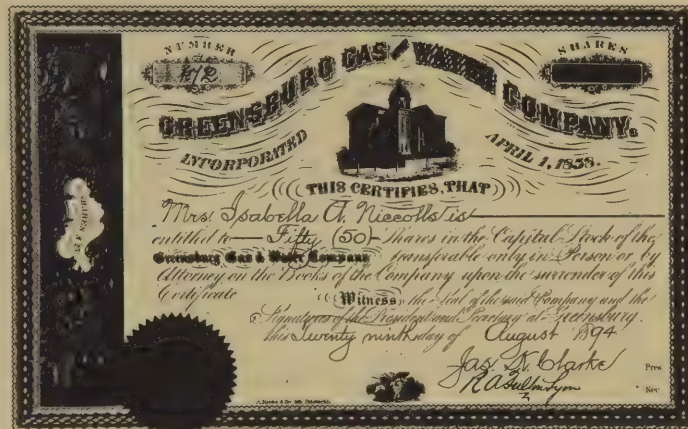 NUMBER
SHARES
GREENSBURG GAS and WATER COMPANY.
INCORPORATED
APRIL 1, 1858.
THIS CERTIFIES, THAT
Mrs. Isabella A. Niccolls is
entitled to Fifty (50) Shares in the Capital Stock of the
Greensburg Gas & Water Company transferable only in Person or by
Attorney on the Books of the Company upon the surrender of this
Certificate
Witness, the Seal of the said Company and the
Signatures of the President and Secretary at Greensburg.
this Twenty ninth day of August 1894
Jas. K. Clarke Pres
Sec